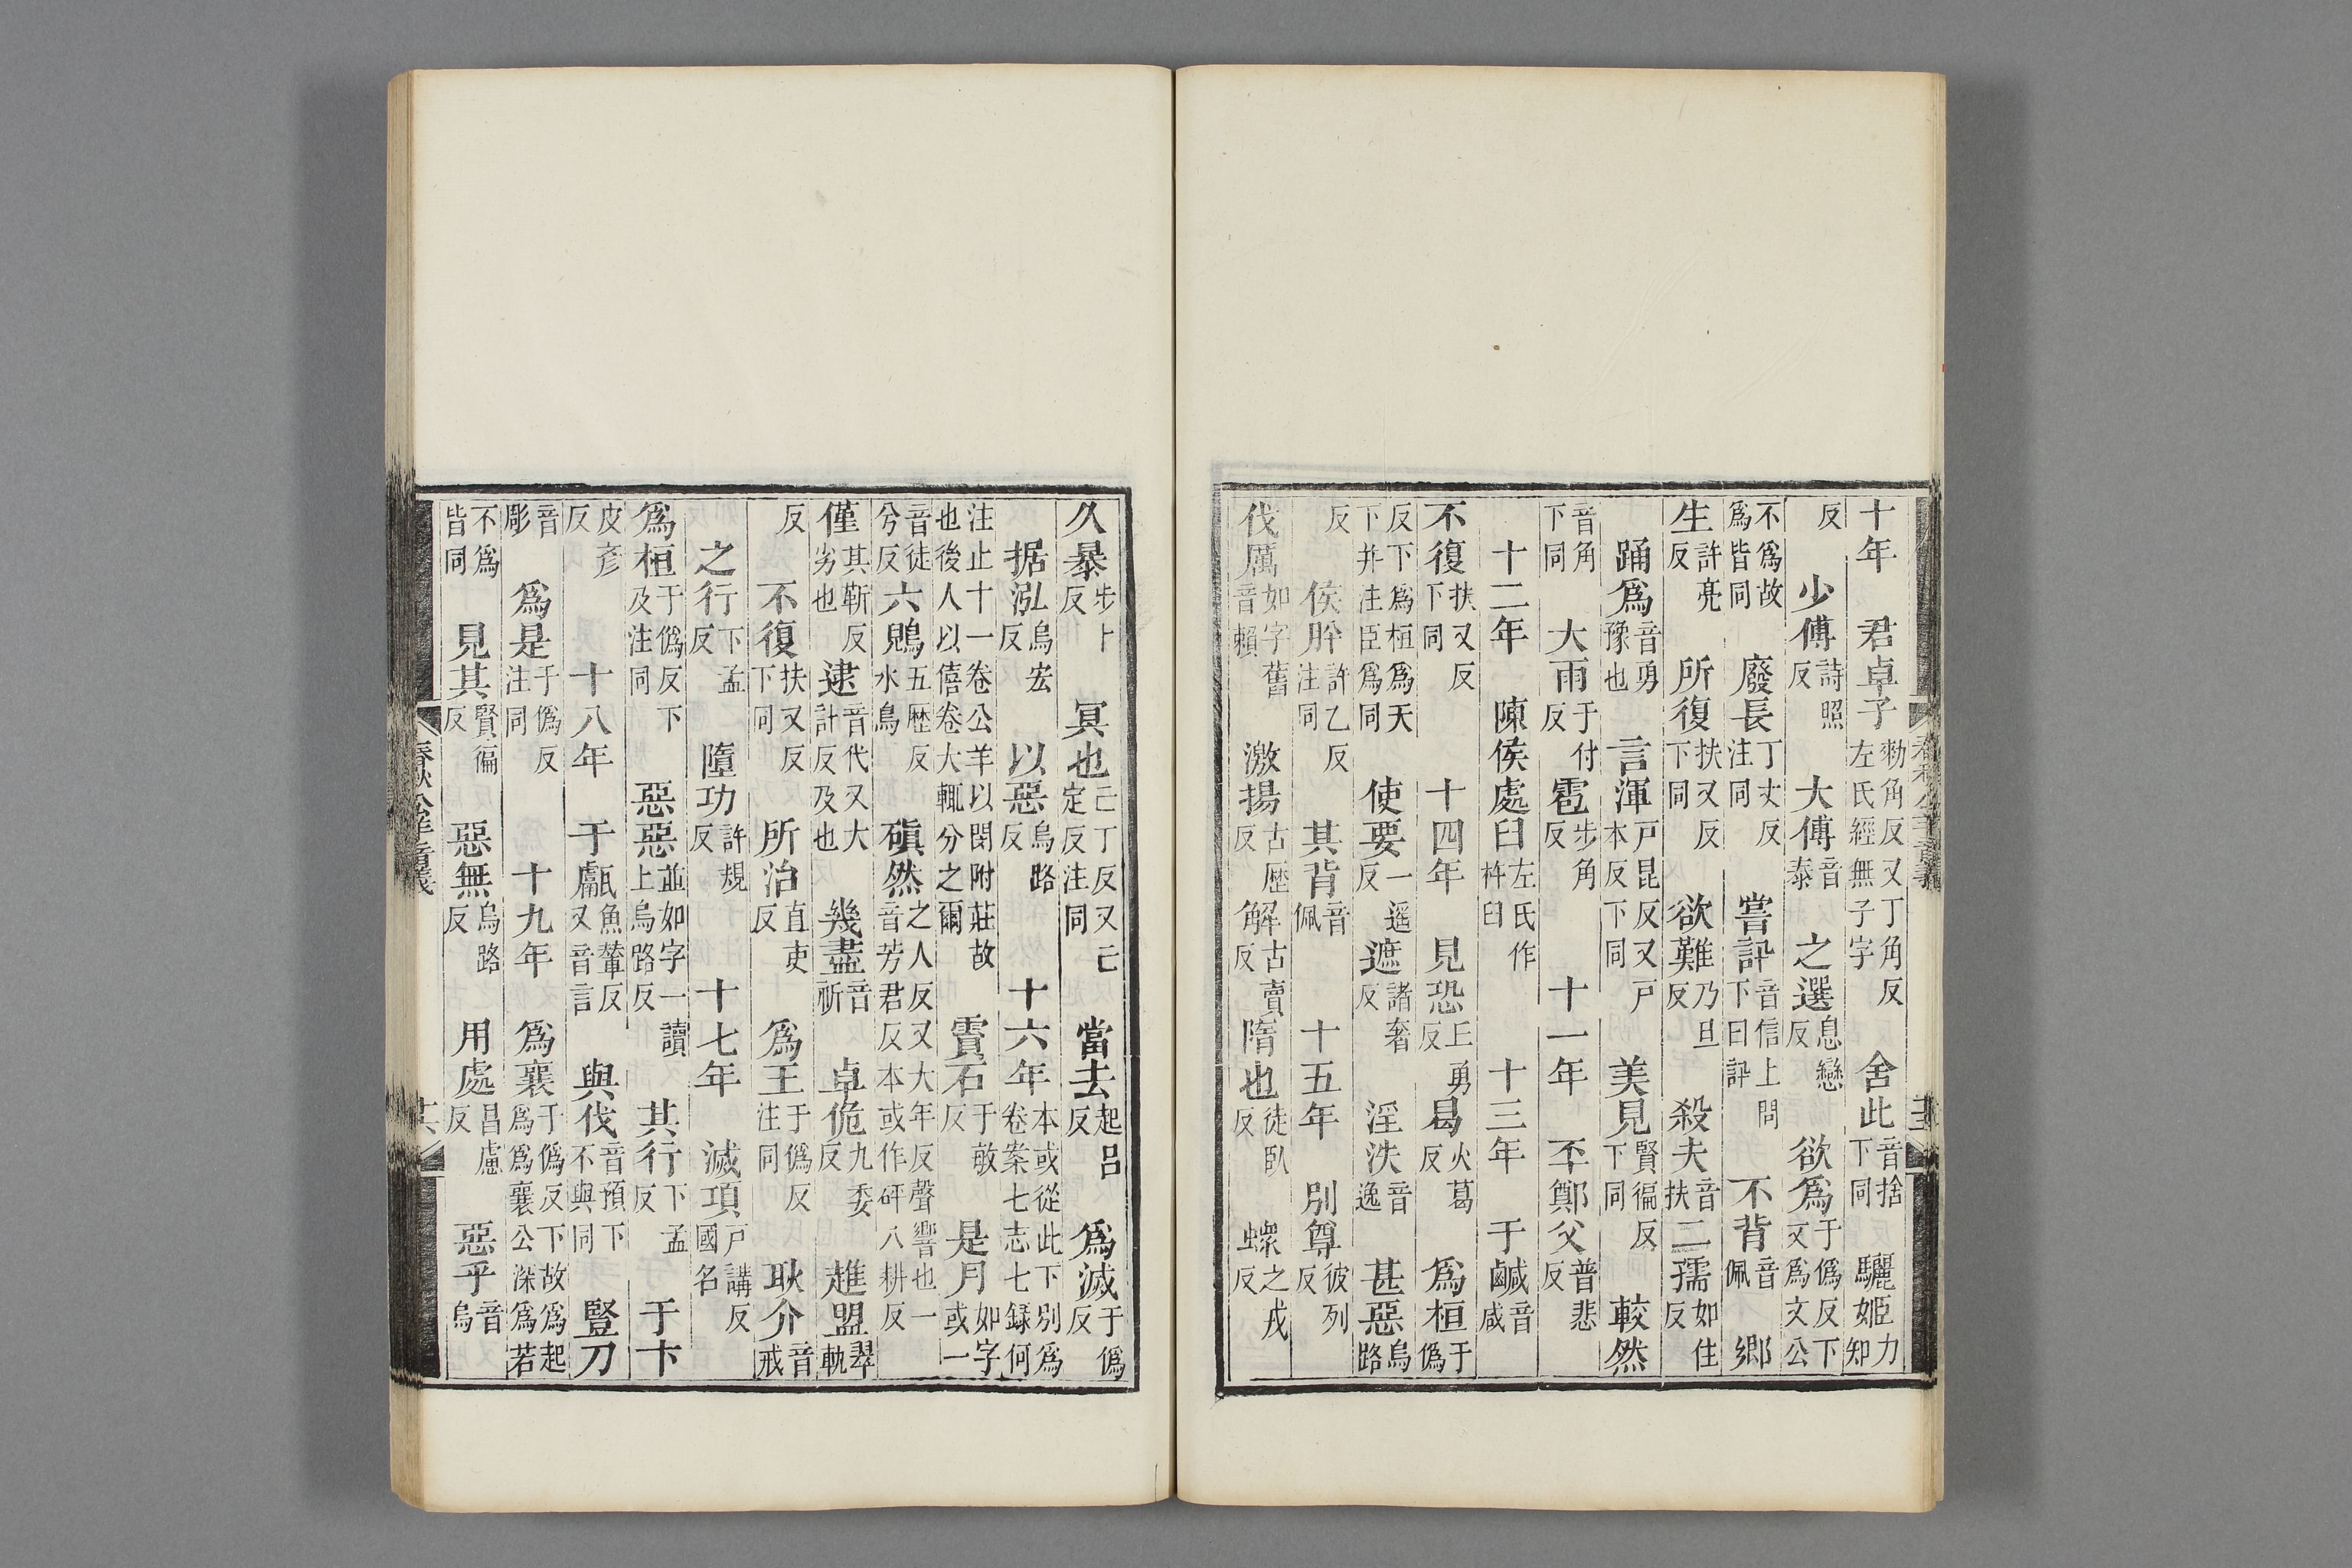 十年　君卓子勑角反又丁角反左氏經無子字　舍此音捨下同　驪姬力知
反　少傅詩照反　大傅音泰　之選息戀反　欲爲于僞反下文爲文公
不爲故爲皆同　廢長丁丈反注同　嘗訊音信上問下曰訊　不背音佩　鄉
生許亮反　所復扶又反下同　欲難乃旦反　殺夫音扶　二孺如住反
踊爲音勇豫也　言渾戸昆反又戸本反下同　美見賢徧反下同　較然
音角下同　大雨于付反　雹步角反　十一年　㔻鄭父普悲反
十二年　陳侯處臼左氏作杵臼　十三年　于鹹音咸
不復扶又反下同　十四年　見恐上勇反　曷火葛反　爲桓于僞
反下爲桓爲天下并注臣爲同　使要一遥反　遮諸奢反　淫泆音逸　甚惡烏路
反　侯肸許乙反注同　其背音佩　十五年　別尊彼列反
伐厲如字舊音賴　激揚古歷反　解古賣反　隋也徒臥反　螺之戎反
久暴步卜反　冥也亡丁反又亡定反注同　當去起呂反　爲滅于僞反
据泓烏宏反　以惡烏路反　十六年本或從此下別爲卷案七志七録何
注止十一卷公羊以閔附莊故也後人以僖卷大輒分之爾　霣石于敏反　是月如字或一
音徒兮反　六鶂五歷反水鳥　磌然之人反又大年反聲響也一音芳君反本或作砰八耕反
僅其靳反劣也　逮音代又大計反及也　幾盡音祈　卓佹九委反　趡盟翠軌
反　不復扶又反下同　所治直吏反　爲王于僞反注同　耿介音戒
之行下孟反　隳功許規反　十七年　滅項戸講反國名
爲桓于僞反下及注同　惡惡並如字一讀上烏路反　其行下孟反　于卞
皮彥反　十八年　于甗魚輦反又音言　與伐音預下不與同　豎刀
音彫　爲是于僞反注同　十九年　爲襄于僞反下故爲起爲爲襄公深爲爲若
不爲皆同　見其賢徧反　惡無烏路反　用處昌慮反　惡乎音烏
春秋公羊音義